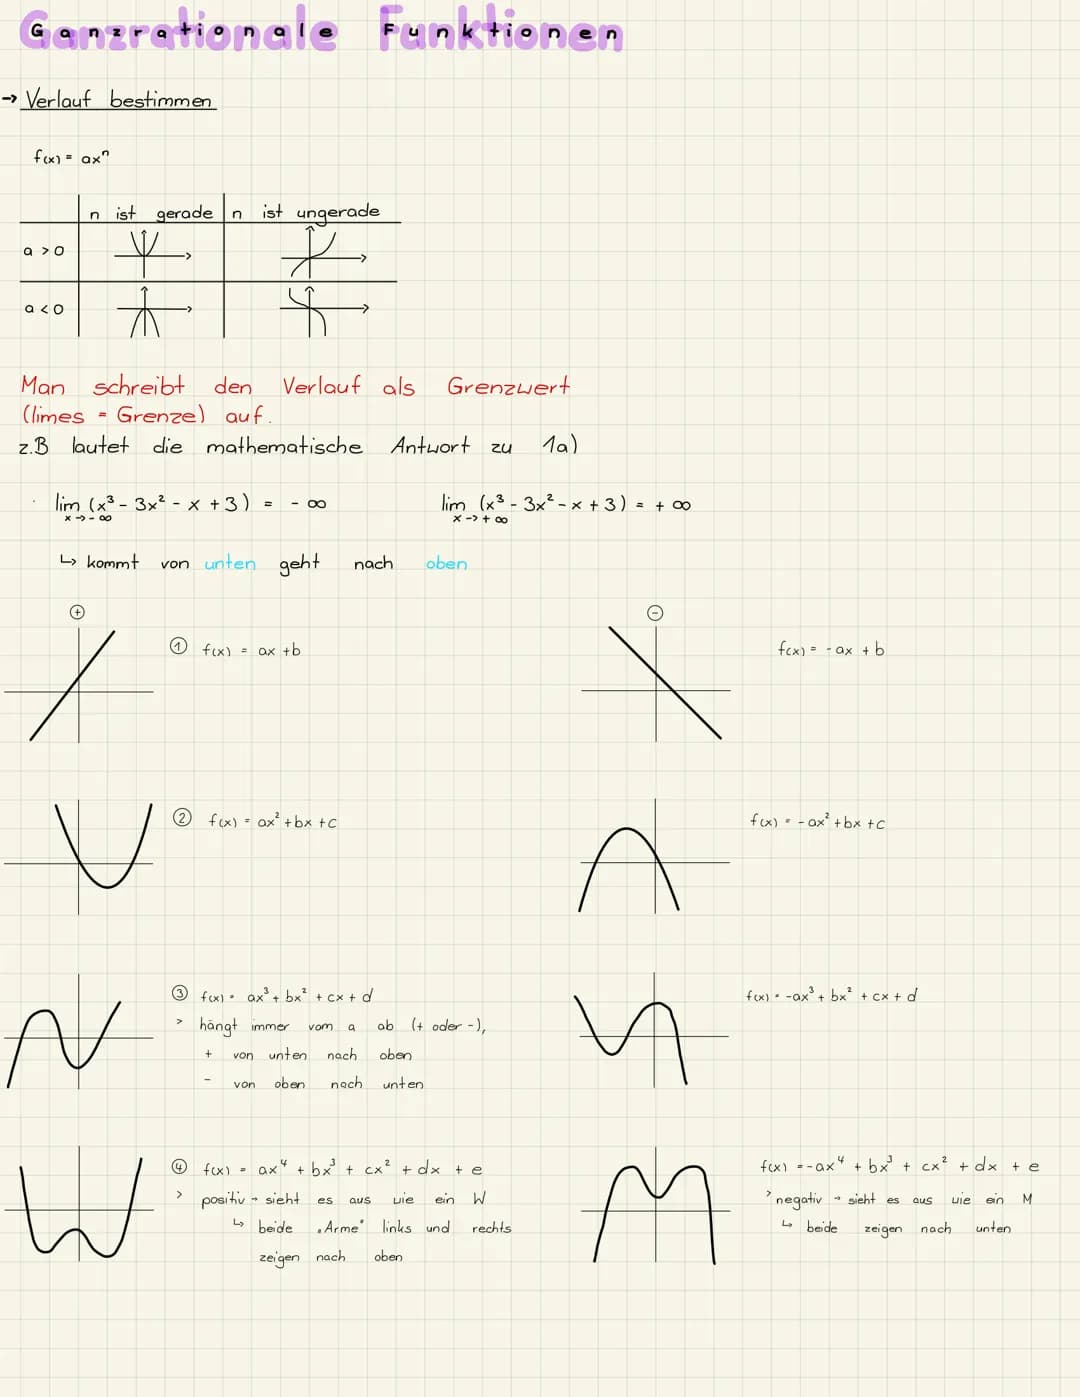 Ganzrationale Funktionen
→ Verlauf bestimmen
f(x) = axⁿ
n ist gerade n ist ungerade
a > 0
a < 0
Man schreibt den Verlauf als Grenzwert
(limes = Grenze) auf.
z.B lautet die mathematische Antwort zu 1a)
lim (x³ - 3x² - x + 3) = - ∞ lim (x³ - 3x² - x + 3) = + ∞
x -> - ∞ x -> + ∞
↳ kommt von unten geht nach oben
⊕ ⊖
① f(x) = ax + b f(x) = - ax + b
② f(x) = ax² + bx + c f(x) = - ax² + bx + c
③ f(x) = ax³ + bx² + cx + d f(x) = -ax³ + bx² + cx + d
> hängt immer vom a ab (+ oder -),
+ von unten nach oben
- von oben nach unten
④ f(x) = ax⁴ + bx³ + cx² + dx + e f(x) = -ax⁴ + bx³ + cx² + dx + e
> positiv → sieht es aus wie ein W > negativ → sieht es aus wie ein M
↳ beide „Arme" links und rechts ↳ beide zeigen nach unten
zeigen nach oben